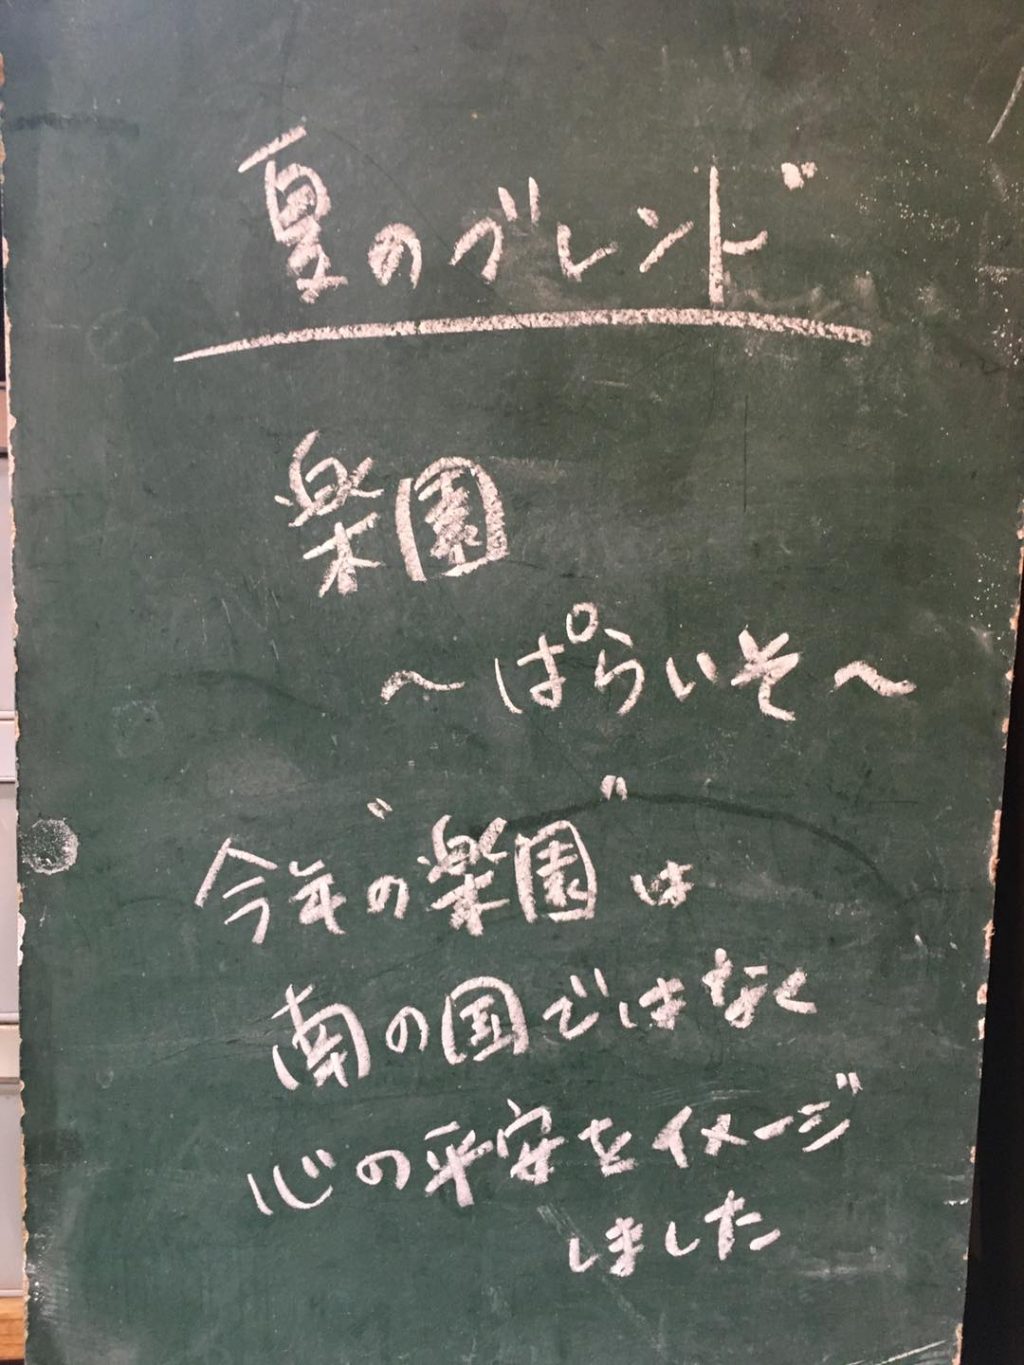 夏のブレンド
楽園
～ぱらいそ～
今年の〝楽園〟は
南の国ではなく
心の平安をイメージ
しました